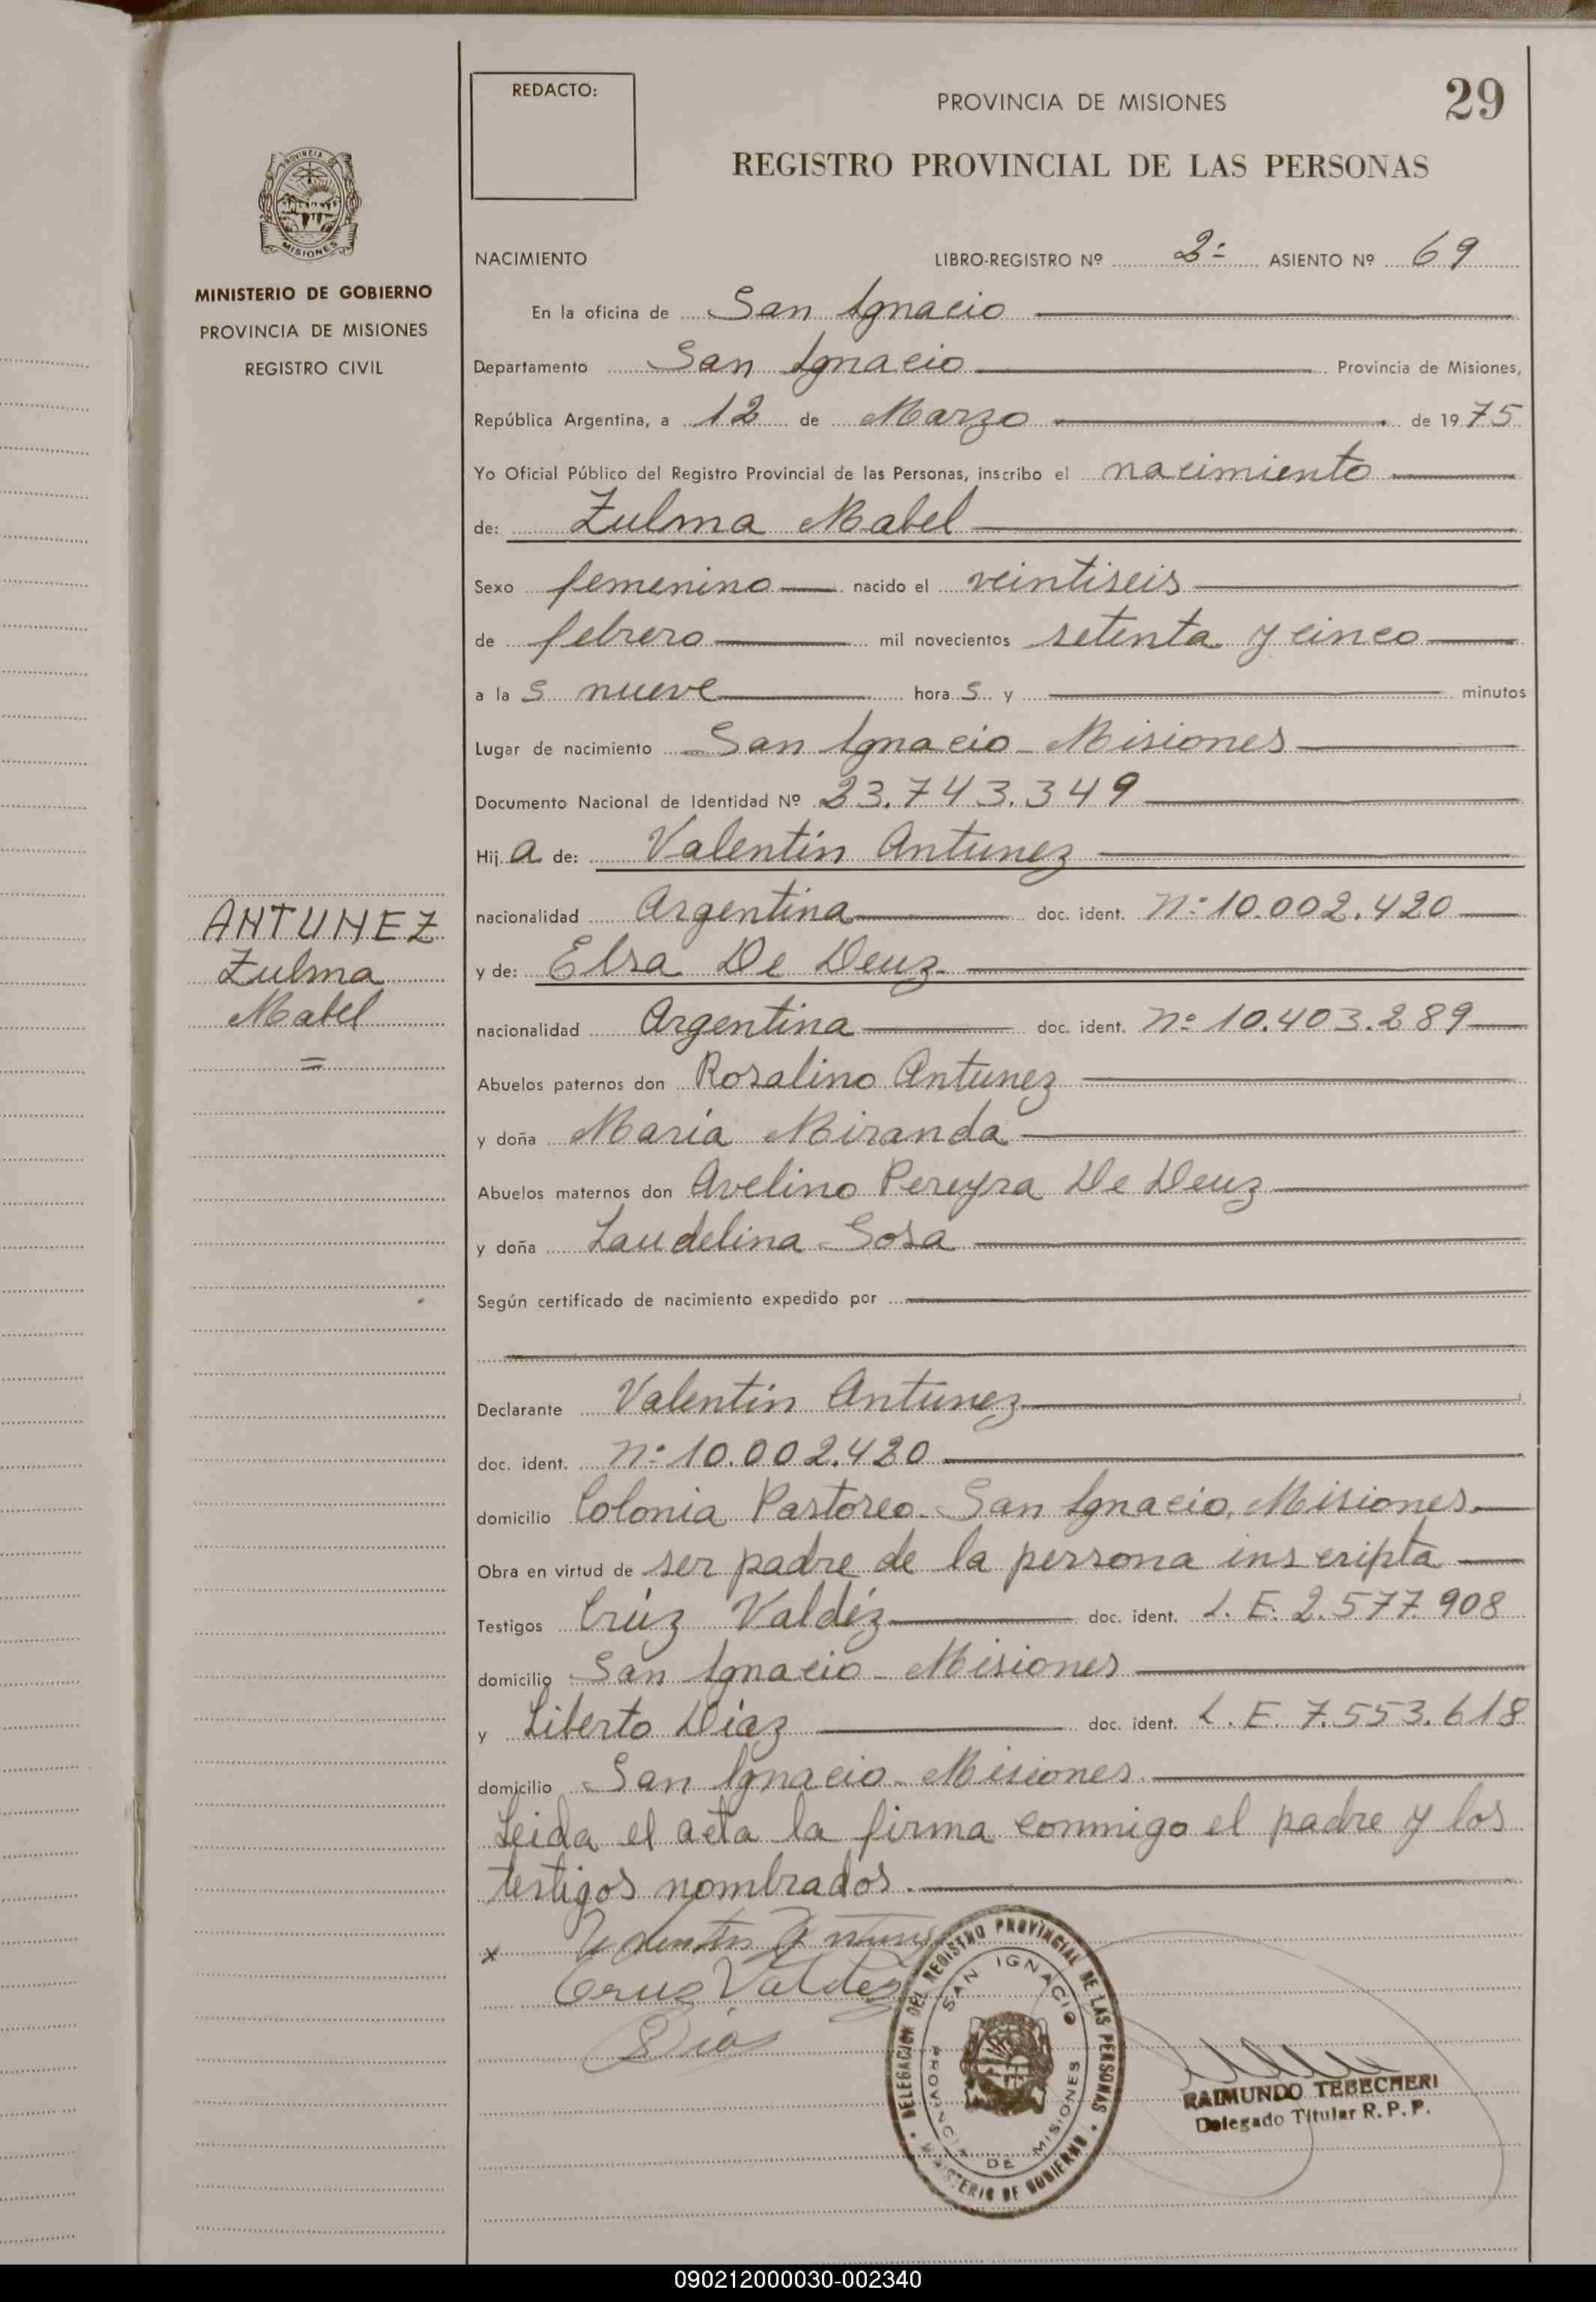 REDACTO:
PROVINCIA DE MISIONES
29
REGISTRO PROVINCIAL DE LAS PERSONAS
PROVINCIA DE
MISIONES
MINISTERIO DE GOBIERNO
PROVINCIA DE MISIONES
REGISTRO CIVIL
ANTUNEZ
Zulma
Mabel
=
NACIMIENTO LIBRO-REGISTRO Nº 2= ASIENTO Nº 69
En la oficina de San Ignacio
Departamento San Ignacio Provincia de Misiones,
República Argentina, a 12 de Marzo de 1975
Yo Oficial Público del Registro Provincial de las Personas, inscribo el nacimiento
de: Zulma Mabel
Sexo femenino nacido el veintiseis
de febrero mil novecientos setenta y cinco
a la s nueve hora s y minutos
Lugar de nacimiento San Ignacio - Misiones
Documento Nacional de Identidad Nº 23.743.349
Hij a de: Valentín Antunez
nacionalidad Argentina doc. ident. nº 10.002.420
y de: Elsa De Deuz
nacionalidad Argentina doc. ident. nº 10.403.289
Abuelos paternos don Rosalino Antunez
y doña María Miranda
Abuelos maternos don Avelino Pereyra De Deuz
y doña Laudelina Sosa
Según certificado de nacimiento expedido por
Declarante Valentín Antunez
doc. ident. nº 10.002.420
domicilio Colonia Pastoreo - San Ignacio, Misiones
Obra en virtud de ser padre de la persona inscripta
Testigos Crúz Valdéz doc. ident. L.E. 2.577.908
domicilio San Ignacio - Misiones
y Liberto Díaz doc. ident. L.E. 7.553.618
domicilio San Ignacio - Misiones
Leida el acta la firma conmigo el padre y los
testigos nombrados.
x Valentin Antunes
Cruz Valdez
Dias
DELEGACION DEL REGISTRO PROVINCIAL DE LAS PERSONAS
SAN IGNACIO
PROVINCIA DE MISIONES
MINISTERIO DE GOBIERNO
RAIMUNDO TEBECHERI
Delegado Titular R. P. P.
090212000030-002340